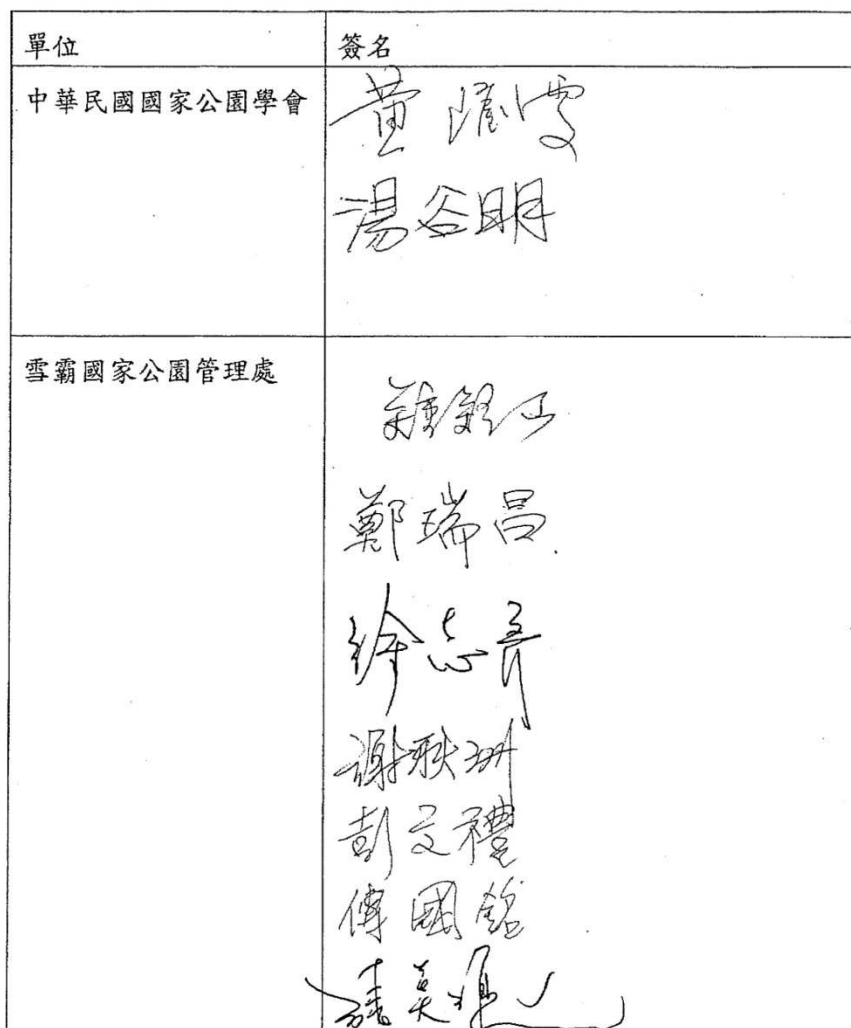 單位 簽名
中華民國國家公園學會 黃躍雯
湯谷明
雪霸國家公園管理處 鍾銘山
鄭瑞昌
徐志青
謝耿洲
彭文禮
傅國銘